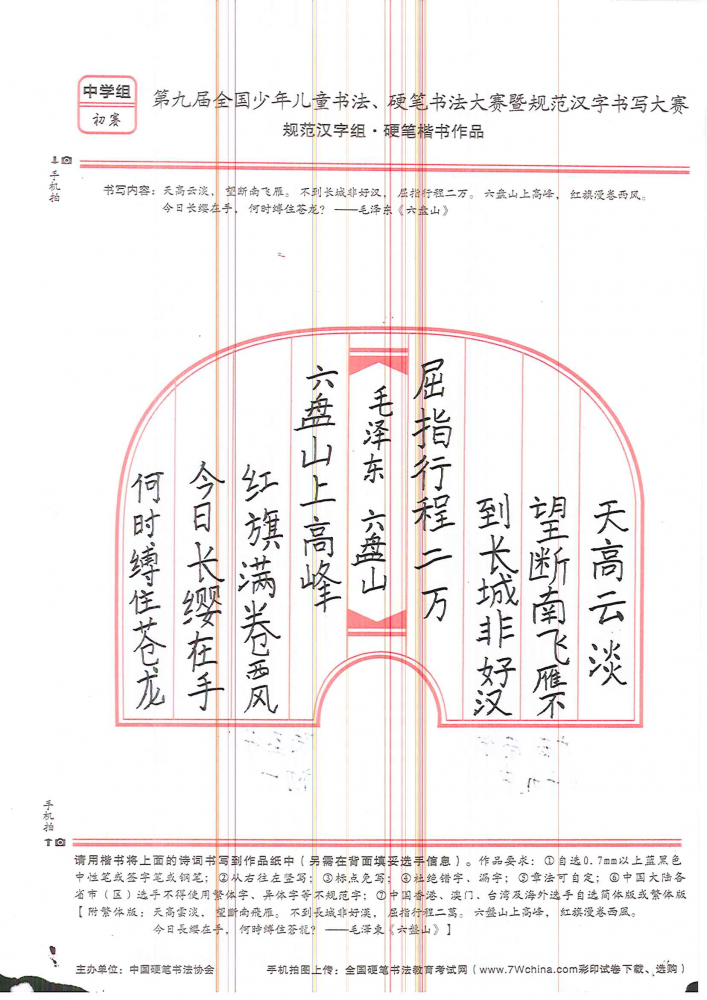 中学组
初赛
第九届全国少年儿童书法、硬笔书法大赛暨规范汉字书写大赛
规范汉字组·硬笔楷书作品
手机拍
书写内容：天高云淡，望断南飞雁。不到长城非好汉，屈指行程二万。六盘山上高峰，红旗漫卷西风。
今日长缨在手，何时缚住苍龙？——毛泽东《六盘山》
天高云淡
望断南飞雁不
到长城非好汉
屈指行程二万
毛泽东 六盘山
六盘山上高峰
红旗满卷西风
今日长缨在手
何时缚住苍龙
手机拍
请用楷书将上面的诗词书写到作品纸中（另需在背面填妥选手信息）。作品要求：①自选0.7mm以上蓝黑色
中性笔或签字笔或钢笔；②从右往左竖写；③标点免写；④杜绝错字、漏字；⑤章法可自定；⑥中国大陆各
省市（区）选手不得使用繁体字、异体字等不规范字；⑦中国香港、澳门、台湾及海外选手自选简体版或繁体版
【附繁体版：天高雲淡，望斷南飛雁。不到長城非好漢，屈指行程二萬。六盤山上高峰，紅旗漫卷西風。
今日長纓在手，何時縛住蒼龍？——毛澤東《六盤山》】
主办单位：中国硬笔书法协会
手机拍图上传：全国硬笔书法教育考试网（www.7Wchina.com彩印试卷下载、选购）